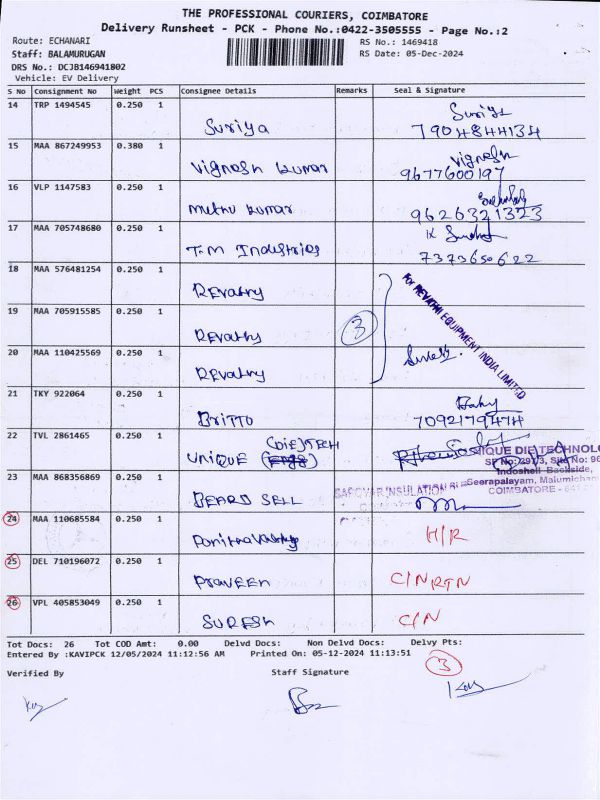 THE PROFESSIONAL COURIERS, COIMBATORE
Delivery Runsheet - PCK - Phone No.:0422-3505555 - Page No.:2
Route: ECHANARI RS No.: 1469418
Staff: BALAMURUGAN RS Date: 05-Dec-2024
DRS No.: DCJB146941802
Vehicle: EV Delivery
S No Consignment No Weight PCS Consignee Details Remarks Seal & Signature
14 TRP 1494545 0.250 1 Suriya
Suriya 7904844134
15 MAA 867249953 0.380 1 Vignesh
Vignesh kumar 9677600197
16 VLP 1147583 0.250 1
Muthu kumar 9626321323
17 MAA 705748680 0.250 1
T.M Industries 7373650622
18 MAA 576481254 0.250 1
REvathy
For REVATHI EQUIPMENT INDIA LIMITED
19 MAA 705915585 0.250 1
REvathy 3
20 MAA 110425569 0.250 1
REvathy
21 TKY 922064 0.250 1
BRITTO 7092179474
22 TVL 2861465 0.250 1 (DIE)TECH
UNIQUE
UNIQUE DIE TECHNOLO
SF No: 291/3, Site No: 96
Indoshell Backside,
Seerapalayam, Malumicham
COIMBATORE - 641
23 MAA 868356869 0.250 1
BEARD SELL INSULATION
24 MAA 110685584 0.250 1
H/R
25 DEL 710196072 0.250 1
PRAVEEN C/N RTN
26 VPL 405853049 0.250 1
SURESH C/N
Tot Docs: 26 Tot COD Amt: 0.00 Delvd Docs: Non Delvd Docs: Delvy Pts:
Entered By :KAVIPCK 12/05/2024 11:12:56 AM Printed On: 05-12-2024 11:13:51
3
Verified By Staff Signature